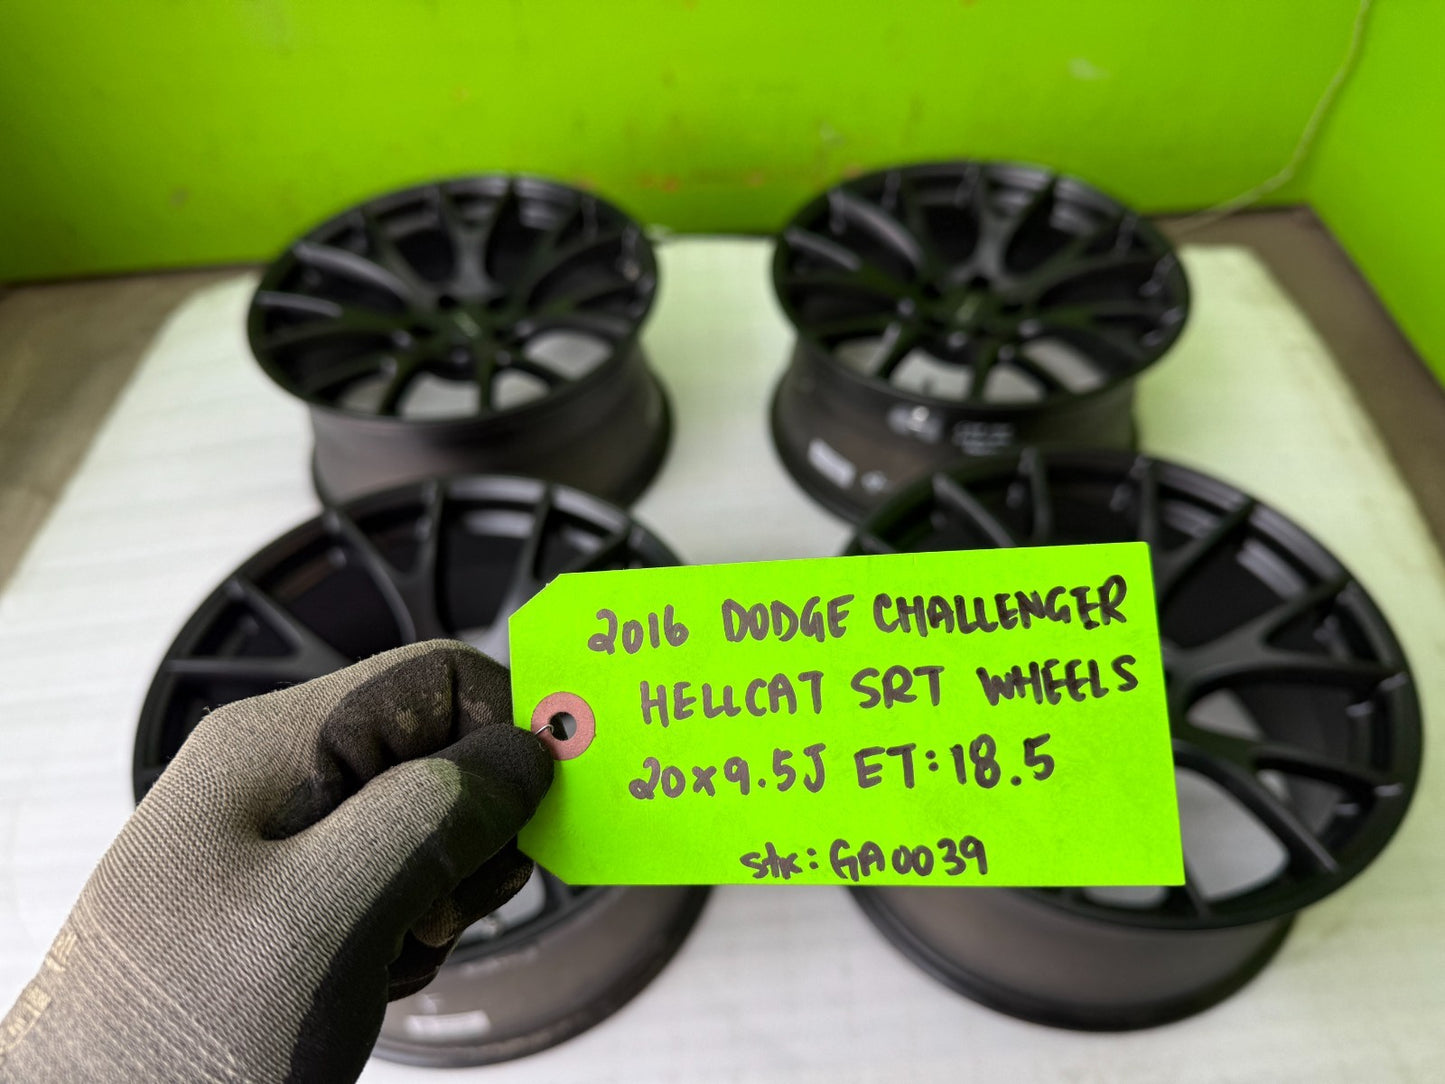 2016 DODGE CHALLENGER
HELLCAT SRT WHEELS
20x9.5J ET:18.5
stk: GA0039